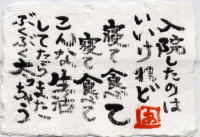 入院したのは
いいけれど
食べて
寝て
食べて
寝て
こんな生活
してたらまた
ぶくぶく太っちゃう